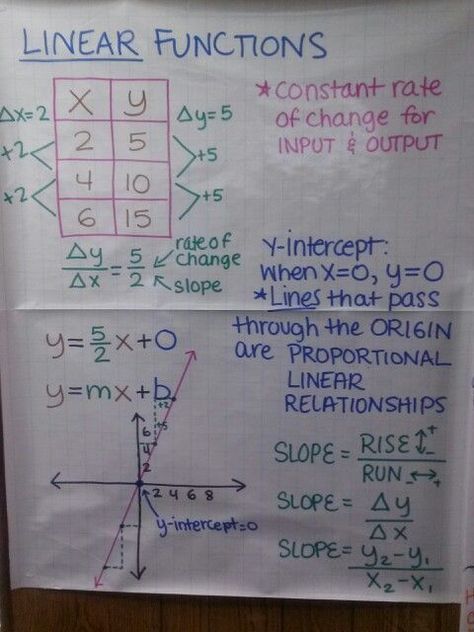 LINEAR FUNCTIONS
Δx=2
x y
Δy=5
2 5
4 10
6 15
+2
+2
+5
+5
*Constant rate
of change for
INPUT & OUTPUT
Δy/Δx = 5/2
rate of
change
slope
Y-intercept:
when x=0, y=0
*Lines that pass
through the ORIGIN
are PROPORTIONAL
LINEAR
RELATIONSHIPS
y=5/2x+0
y=mx+b
+2
+5
6
4
2
2 4 6 8
y-intercept=0
SLOPE = RISE↕+-/RUN -↔+
SLOPE = Δy/Δx
SLOPE = y₂-y₁/x₂-x₁